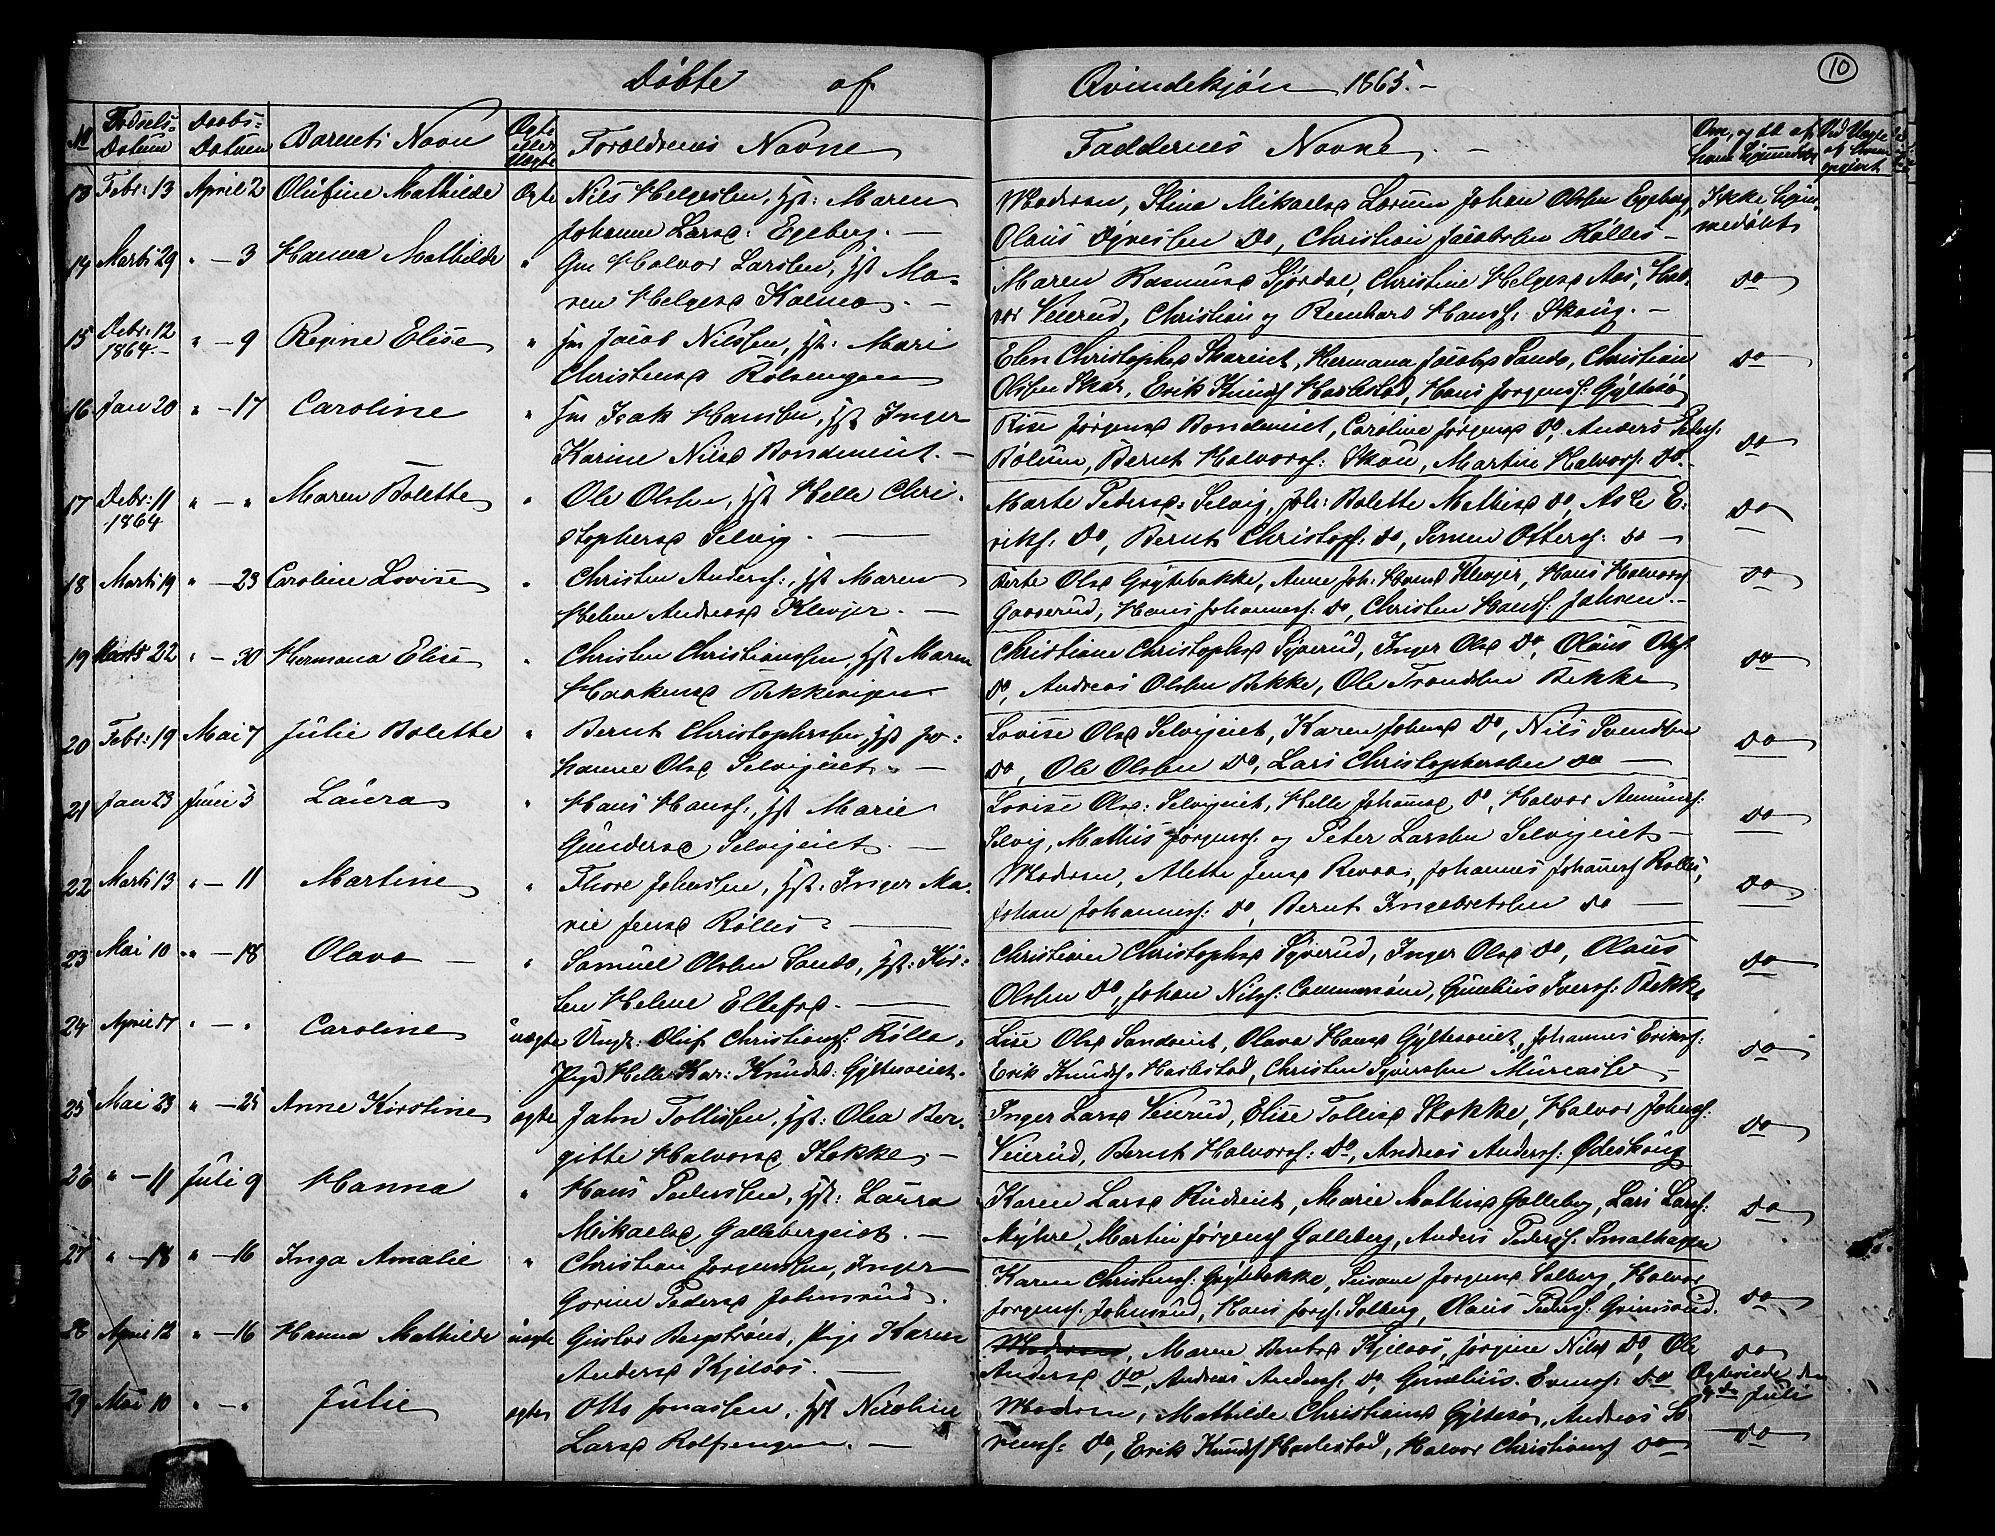 Døbte af Qvindekjøn 1865.-
10
№ Fødsels-Datum Daabs-Datum Barnets Navn Ægte eller Uægte Forældrenes Navne Faddernes Navne
13 Febr: 13 April 2 Olufine Mathilde Ægte Nils Helgessen, Hst: Maren
Johanne Larsd: Egeberg. —
Moderen, Stine Mikaelsd Lorum Johan Olssen Egeberg, Ikke hjem-
Olaus Syvessen do, Christian Jacobssen Rølles — medøbt
14 Marts 29 " - 3 Hanna Mathilde " Gm Halvor Larssen, Hst Ma-
ren Helgesd Kalmo. —
Maren Rasmusd Fjordse, Christine Helgesd Aas, Hal- do
vor Veierud, Christian og Reinhard Hanss: Skoug. —
15 Debr: 12 1864.- " - 9 Regine Elise " Gm Jacob Nilssen, Hst: Mari
Christensd Rølsengen
Elen Christophsd Skareiet, Hermana Jacobsd Sando, Christian do
Olssen Skar, Erik Knuds Harlstad, Hans Jørgens: Gyltesø
16 Jan 20 " - 17 Caroline " Gm Isak Hanssen, Hst Inger
Karine Nilsd Bondeneiet. —
Rise Jørgensd Bondeneiet, Caroline Jørgensd do, Anders Peders: do
Bølum, Bernt Halvors: Skou, Martin Halvors: do. —
17 Debr: 11 1864 " - " Maren Bolette " Ole Olssen, Hst Helle Chri-
stophersd Selvig. —
Marte Pedersd: Selvig, Joh: Bolette Mathisd do, Asle E- do
riks: do, Bernt Christops: do, Simen Otters: do —
18 Marts 19 " - 23 Caroline Lovise " Christen Anderss:, Hst Maren
Helene Andreasd Klevjer. —
Berte Olsd Grytebakke, Anne Joh: Hansd Klevjer, Hans Halvors: do
Gaaserud, Hans Johanness: do, Christen Hanss: Jahren. —
19 Marts 22 " - 30 Hermana Elise " Christen Christianssen, Hst Maren
Haakensd Bekkevigen
Christiane Christophsd Syverud, Inger Olsd do, Olaus Ols: do
do, Andreas Olssen Bekke, Ole Trondssen Bekke
20 Febr: 19 Mai 7 Julie Bolette " Bernt Christopherssen, Hst Jo-
hanne Olsd Selvigeiet. —
Lovise Olsd Selvigeiet, Karen Johnsd do, Nils Svendssen do
do, Ole Olssen do, Lars Christopherssen do —
21 Jan 23 Juni 5 Laura " Hans Hanss:, Hst Marie
Gundersd Selvigeiet. —
Lovise Olsd: Selvigeiet, Helle Johannsd do, Halvor Amunds: do
Selvig, Mathis Jørgens: og Peter Larssen Selvigeiet —
22 Marts 13 " - 11 Martine " Thore Johnssen, Hst: Inger Ma-
rie Jensd Rølles —
Moderen, Alette Jensd Revaas, Johannes Johanness Rølles, do
Johan Johanness: do, Bernt Ingebretssen do —
23 Mai 10 " - 18 Olava — " Samuel Olssen Sando, Hst: Kir-
sten Helene Ellefsd. —
Christian Christophsd Syverud, Inger Olsd do, Olaus do
Olssen do, Johan Nilss: Commersøen, Gunelius Iverss: Bekke
24 April 17 " - " Caroline uægte Ungk: Oluf Christians: Rølles,
Pige Helle Kar: Knudsd: Gyltesøeiet.
Lise Olsd Sandveiet, Olava Hansd Gyltesøeiet, Johannes Eriks: do
Erik Knuds: Harlestad, Christen Syverssen Murcasse —
25 Mai 23 " - 25 Anne Kirstine ægte Jahn Tollissen, Hst: Olea Ber-
gitte Halvorsd Stokke —
Inger Larsd Veierud, Elise Tollisd Stokke, Halvor Johns: do
Veierud, Bernt Halvorss: do, Andreas Anderss: Ødeskoug
26 " - 11 Juli 9 Hanna " Hans Pederssen, Hst: Laura
Mikaelsd Gallebergeiet. —
Karen Larsd Rudseiet, Marie Mathisd Galleberg, Lars Larss: do
Myhre, Martin Jørgens Galleberg, Anders Pederss: Smalhagen
27 " - 18 " - 16 Inga Amalie " Christian Jørgenssen, Inger
Gorine Pedersd Johnsrud.
Karen Christens: Grytebakke, Susane Jørgensd Solberg, Halvor do
Jørgens: Johnsrud, Hans Jørgs: Solberg, Olaus Pederss: Grimsrud.
28 April 12 " - 16 Hanna Mathilde uægte Gustav Bergstrønd, Pige Karen
Andersd Kjelaas. —
Moderen, Maren Bentsd Kjelaas, Jørgine Nilsd do, Ole do
Andersd do, Andreas Anderss: do, Gunelius Evenss: do Ægteviede den
Juli
29 Mai 10 " - " Julie ægte Otto Jonassen, Hst Nicoline
Larsd Rolfsengen. —
Moderen, Mathilde Christiansd Gyltesø, Andreas Sø-
rens: do, Erik Knuds Harlestad, Halvor Christians do do